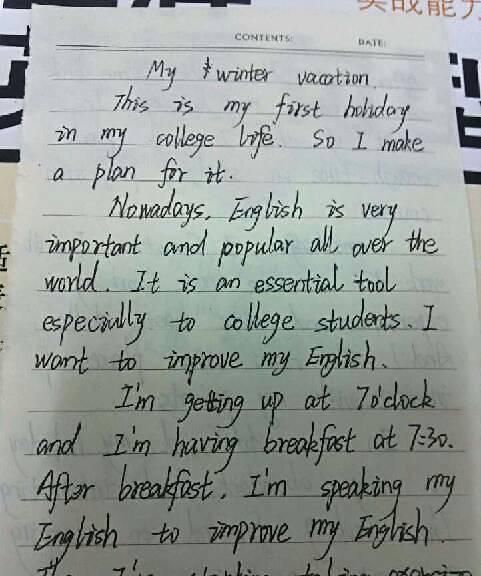 实战能力
CONTENTS: DATE:
My winter vacation.
This is my first holiday
in my college life. So I make
a plan for it.
Nowadays, English is very
important and popular all over the
world. It is an essential tool
especially to college students. I
want to improve my English.
I'm getting up at 7 o'clock
and I'm having breakfast at 7:30.
After breakfast, I'm speaking my
English to improve my English.